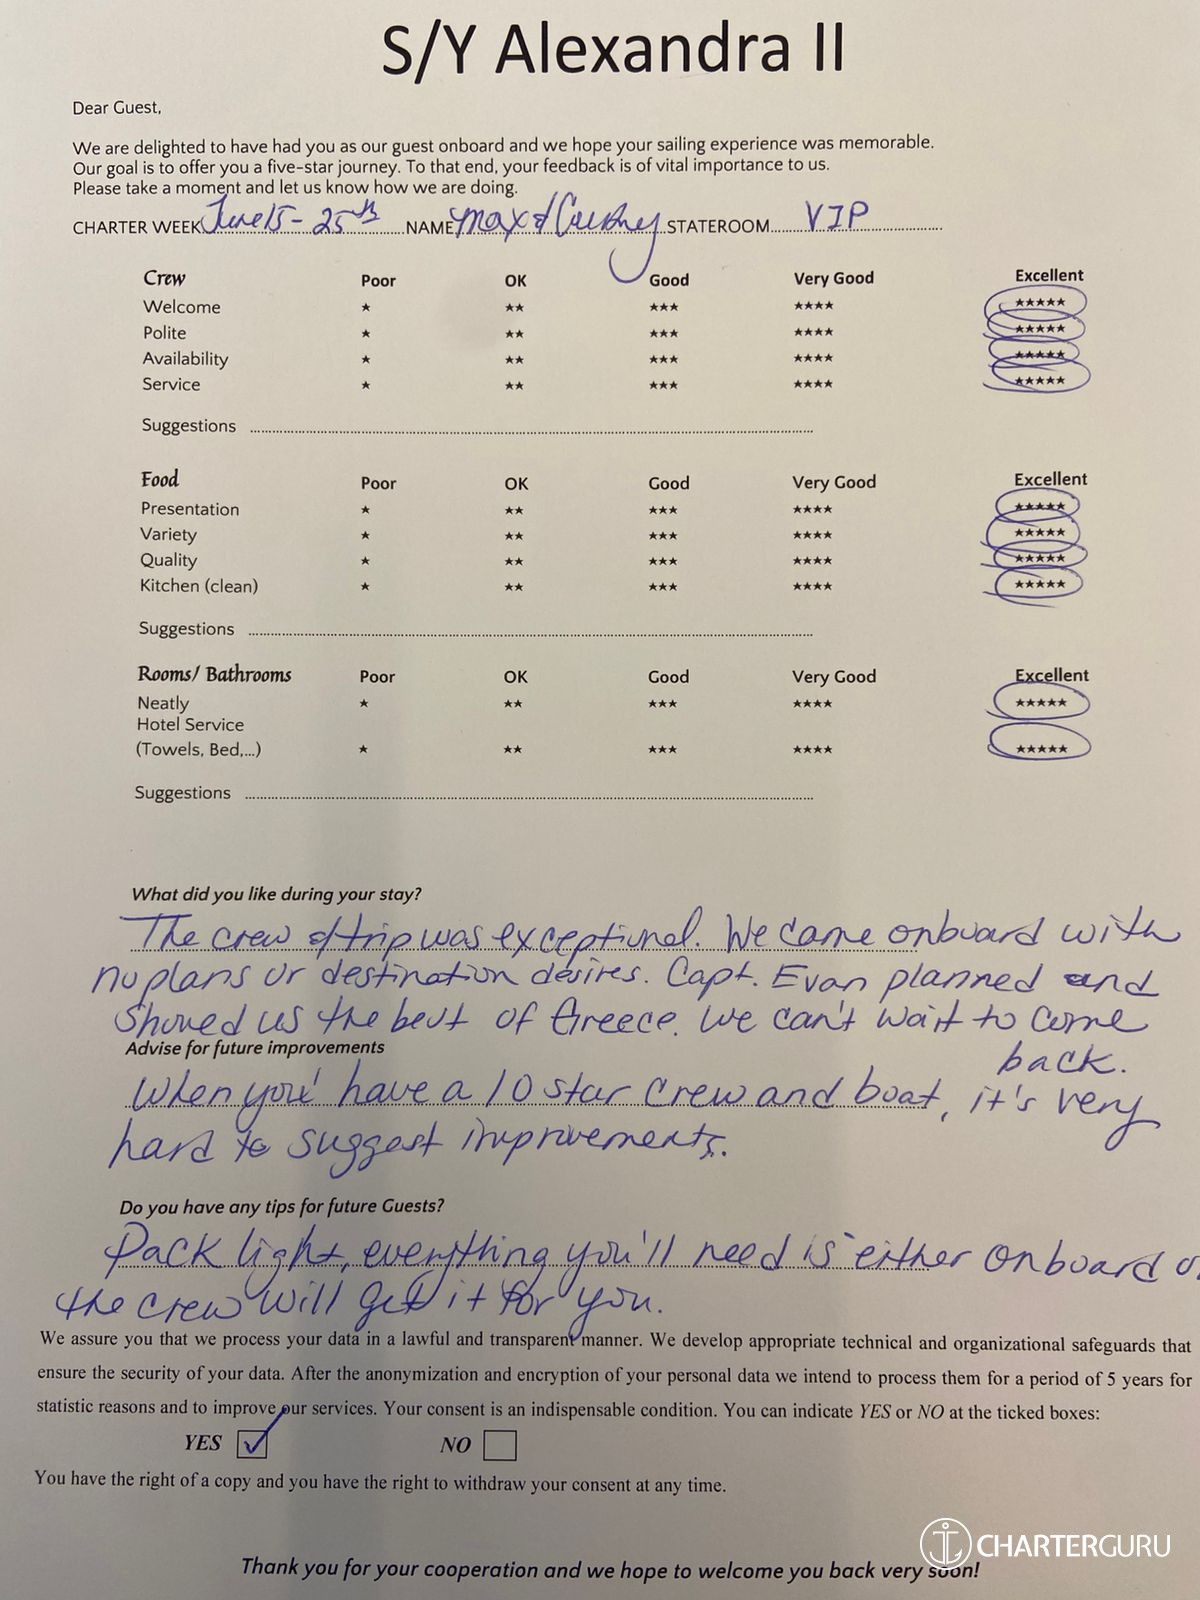 S/Y Alexandra II
Dear Guest,
We are delighted to have had you as our guest onboard and we hope your sailing experience was memorable.
Our goal is to offer you a five-star journey. To that end, your feedback is of vital importance to us.
Please take a moment and let us know how we are doing.
CHARTER WEEK June 15 - 25th NAME Max & STATEROOM VIP
Crew Poor OK Good Very Good Excellent
Welcome ★ ★★ ★★★ ★★★★ ★★★★★
Polite ★ ★★ ★★★ ★★★★ ★★★★★
Availability ★ ★★ ★★★ ★★★★ ★★★★★
Service ★ ★★ ★★★ ★★★★ ★★★★★
Suggestions
Food Poor OK Good Very Good Excellent
Presentation ★ ★★ ★★★ ★★★★ ★★★★★
Variety ★ ★★ ★★★ ★★★★ ★★★★★
Quality ★ ★★ ★★★ ★★★★ ★★★★★
Kitchen (clean) ★ ★★ ★★★ ★★★★ ★★★★★
Suggestions
Rooms/ Bathrooms Poor OK Good Very Good Excellent
Neatly ★ ★★ ★★★ ★★★★ ★★★★★
Hotel Service
(Towels, Bed,...) ★ ★★ ★★★ ★★★★ ★★★★★
Suggestions
What did you like during your stay?
The crew & trip was exceptional. We came onboard with
no plans or destination desires. Capt. Evan planned and
showed us the best of Greece. We can't wait to come
back.
Advise for future improvements
When you have a 10 star crew and boat, it's very
hard to suggest improvements.
Do you have any tips for future Guests?
Pack light, everything you'll need is either onboard or
the crew will get it for you.
We assure you that we process your data in a lawful and transparent manner. We develop appropriate technical and organizational safeguards that
ensure the security of your data. After the anonymization and encryption of your personal data we intend to process them for a period of 5 years for
statistic reasons and to improve our services. Your consent is an indispensable condition. You can indicate YES or NO at the ticked boxes:
YES NO
You have the right of a copy and you have the right to withdraw your consent at any time.
CHARTERGURU
Thank you for your cooperation and we hope to welcome you back very soon!